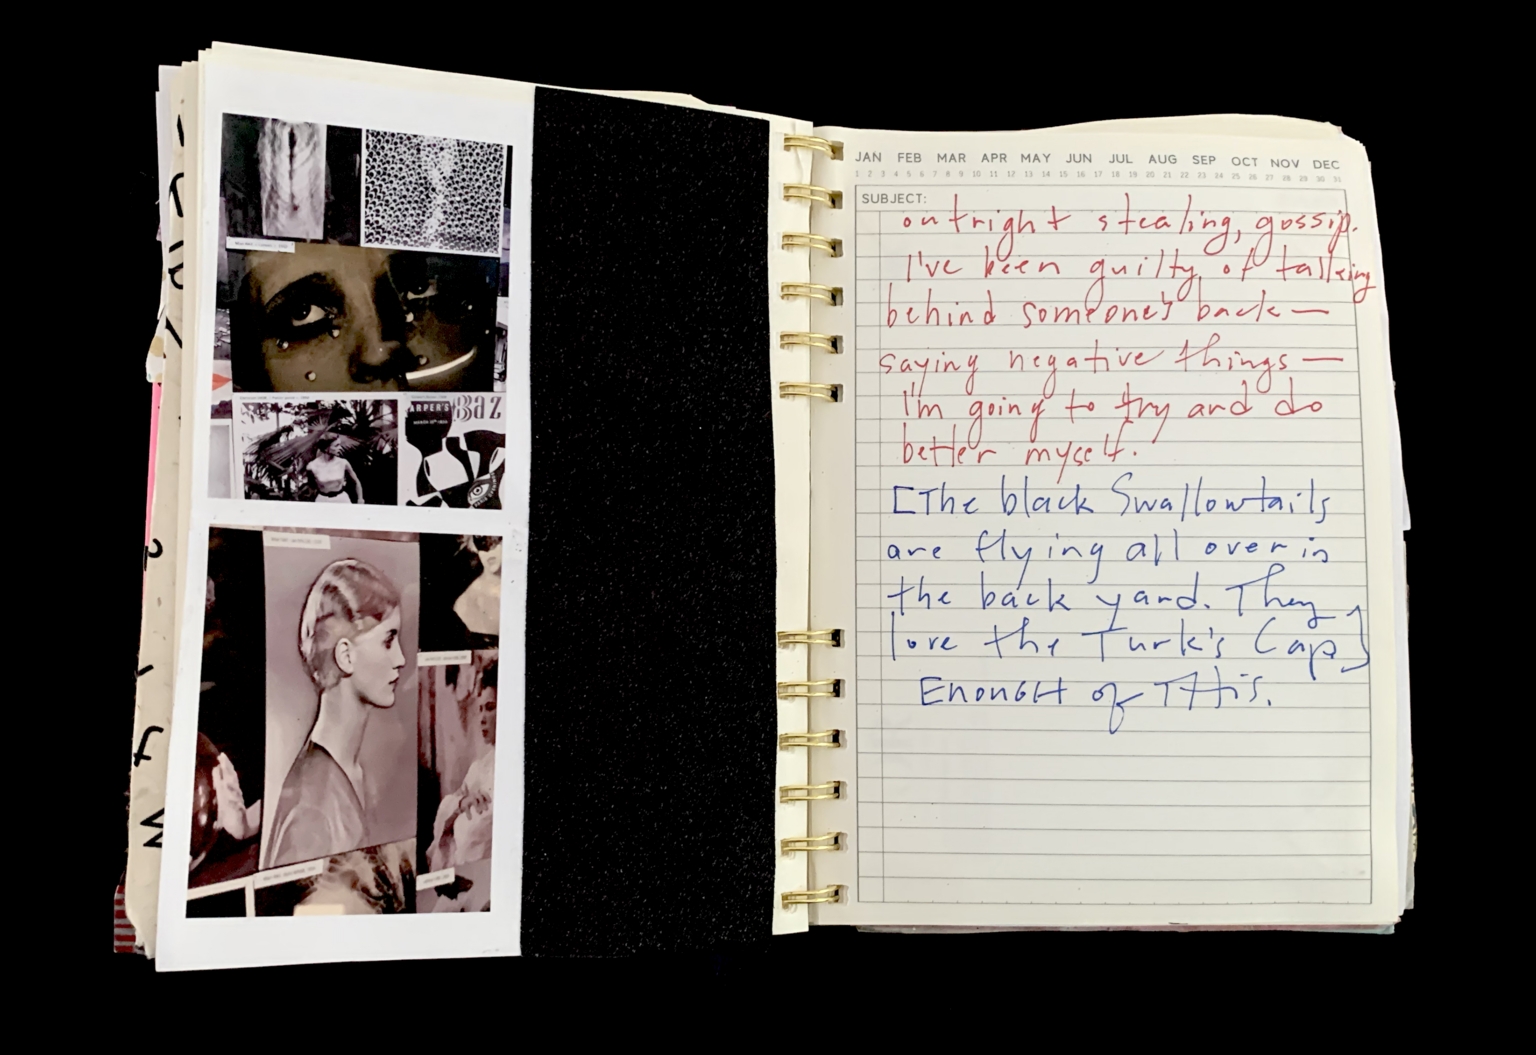 ARPER'S
Baz
JAN FEB MAR APR MAY JUN JUL AUG SEP OCT NOV DEC
1 2 3 4 5 6 7 8 9 10 11 12 13 14 15 16 17 18 19 20 21 22 23 24 25 26 27 28 29 30 31
SUBJECT:
outright stealing, gossip.
I've been guilty of talking
behind someone's back —
saying negative things —
I'm going to try and do
better myself.
[The black Swallowtails
are flying all over in
the back yard. They
love the Turk's Cap]
ENOUGH of THis.